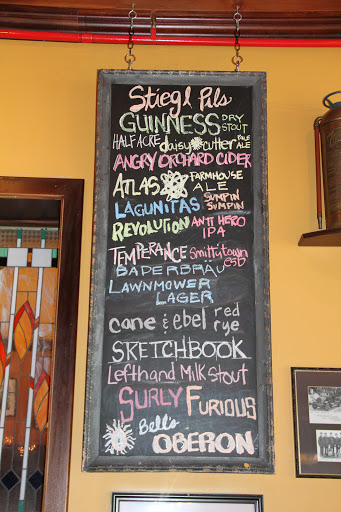 Stiegl Pils
GUINNESS DRY STOUT
HALF ACRE daisy cutter PALE ALE
ANGRY ORCHARD CIDER
ATLAS FARMHOUSE ALE
LAGUNITAS SUMPIN SUMPIN
REVOLUTION ANTI HERO IPA
TEMPERANCE Smittytown ESB
BADERBRÄU
LAWNMOWER
LAGER
cane & ebel red rye
SKETCHBOOK
Lefthand Milk Stout
SURLY FURIOUS
Bell's
OBERON